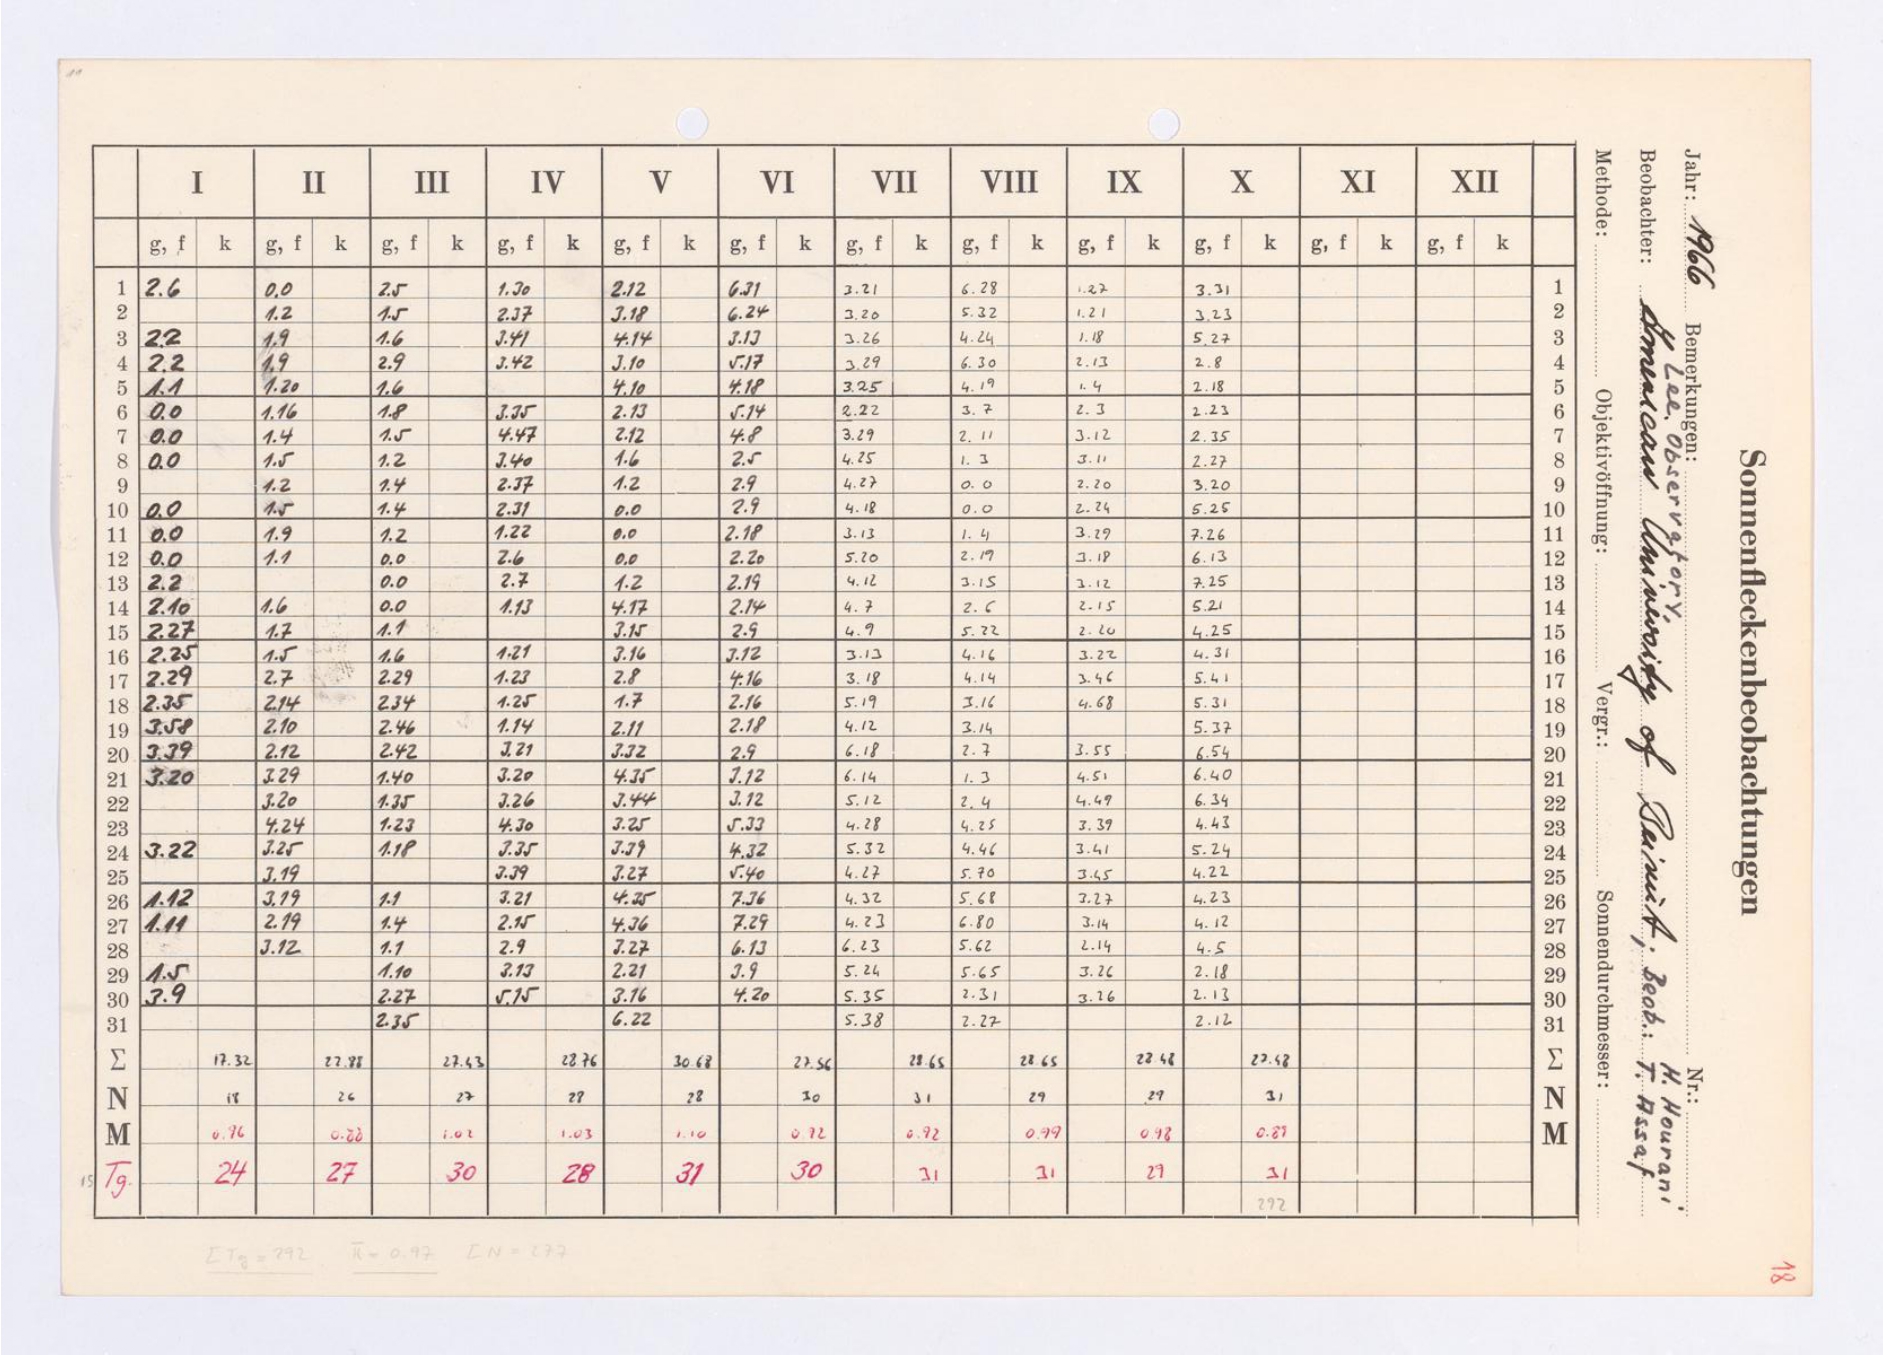 11
Sonnenfleckenbeobachtungen
Jahr: 1966 Bemerkungen: Nr.:
Lee Observatory, H. Hourani
Beobachter: American University of Beirut, Beob.: T. Assaf
Methode: Objektivöffnung: Vergr.: Sonnendurchmesser:
I II III IV V VI VII VIII IX X XI XII
g, f k g, f k g, f k g, f k g, f k g, f k g, f k g, f k g, f k g, f k g, f k g, f k
1 2.6 0.0 2.5 1.30 2.12 6.31 3.21 6.28 1.27 3.31 1
2 1.2 1.5 2.37 3.18 6.24 3.20 5.32 1.21 3.23 2
3 2.2 1.9 1.6 3.41 4.14 3.13 3.26 4.24 1.18 5.27 3
4 2.2 1.9 2.9 3.42 3.10 5.17 3.29 6.30 2.13 2.8 4
5 1.1 1.20 1.6 4.10 4.18 3.25 4.19 1.4 2.18 5
6 0.0 1.16 1.8 3.35 2.13 5.14 2.22 3.7 2.3 2.23 6
7 0.0 1.4 1.5 4.47 2.12 4.8 3.29 2.11 3.12 2.35 7
8 0.0 1.5 1.2 3.40 1.6 2.5 4.25 1.3 3.11 2.27 8
9 1.2 1.4 2.37 1.2 2.9 4.27 0.0 2.20 3.20 9
10 0.0 1.5 1.4 2.31 0.0 2.9 4.18 0.0 2.24 5.25 10
11 0.0 1.9 1.2 1.22 0.0 2.18 3.13 1.4 3.29 7.26 11
12 0.0 1.1 0.0 2.6 0.0 2.20 5.20 2.19 3.18 6.13 12
13 2.2 0.0 2.7 1.2 2.19 4.12 3.15 3.12 7.25 13
14 2.10 1.6 0.0 1.13 4.17 2.14 4.7 2.6 2.15 5.21 14
15 2.27 1.7 1.1 3.15 2.9 4.9 5.22 2.20 4.25 15
16 2.25 1.5 1.6 1.21 3.16 3.12 3.13 4.16 3.22 4.31 16
17 2.29 2.7 2.29 1.23 2.8 4.16 3.18 4.14 3.46 5.41 17
18 2.35 2.14 2.34 1.25 1.7 2.16 5.19 3.16 4.68 5.31 18
19 3.58 2.10 2.46 1.14 2.11 2.18 4.12 3.14 5.37 19
20 3.39 2.12 2.42 3.21 3.32 2.9 6.18 2.7 3.55 6.54 20
21 3.20 3.29 1.40 3.20 4.35 3.12 6.14 1.3 4.51 6.40 21
22 3.20 1.35 3.26 3.44 3.12 5.12 2.4 4.49 6.34 22
23 4.24 1.23 4.30 3.25 5.33 4.28 4.25 3.39 4.43 23
24 3.22 3.25 1.18 3.35 3.39 4.32 5.32 4.46 3.41 5.24 24
25 3.19 3.39 3.27 5.40 4.27 5.70 3.45 4.22 25
26 1.12 3.19 1.1 3.21 4.35 7.36 4.32 5.68 3.27 4.23 26
27 1.11 2.19 1.4 2.15 4.36 7.29 4.23 6.80 3.14 4.12 27
28 3.12 1.1 2.9 3.27 6.13 6.23 5.62 2.14 4.5 28
29 1.5 1.10 3.13 2.21 3.9 5.24 5.65 3.26 2.18 29
30 3.9 2.27 5.15 3.16 4.20 5.35 2.31 3.26 2.13 30
31 2.35 6.22 5.38 2.27 2.12 31
Σ 17.32 22.88 27.43 28.76 30.68 27.56 28.65 28.65 28.48 27.48 Σ
N 18 26 27 28 28 30 31 29 29 31 N
M 0.96 0.88 1.02 1.03 1.10 0.92 0.92 0.99 0.98 0.89 M
15 Tg. 24 27 30 28 31 30 31 31 29 31
292
ΣTg = 292 k̄ = 0.97 ΣN = 277
18